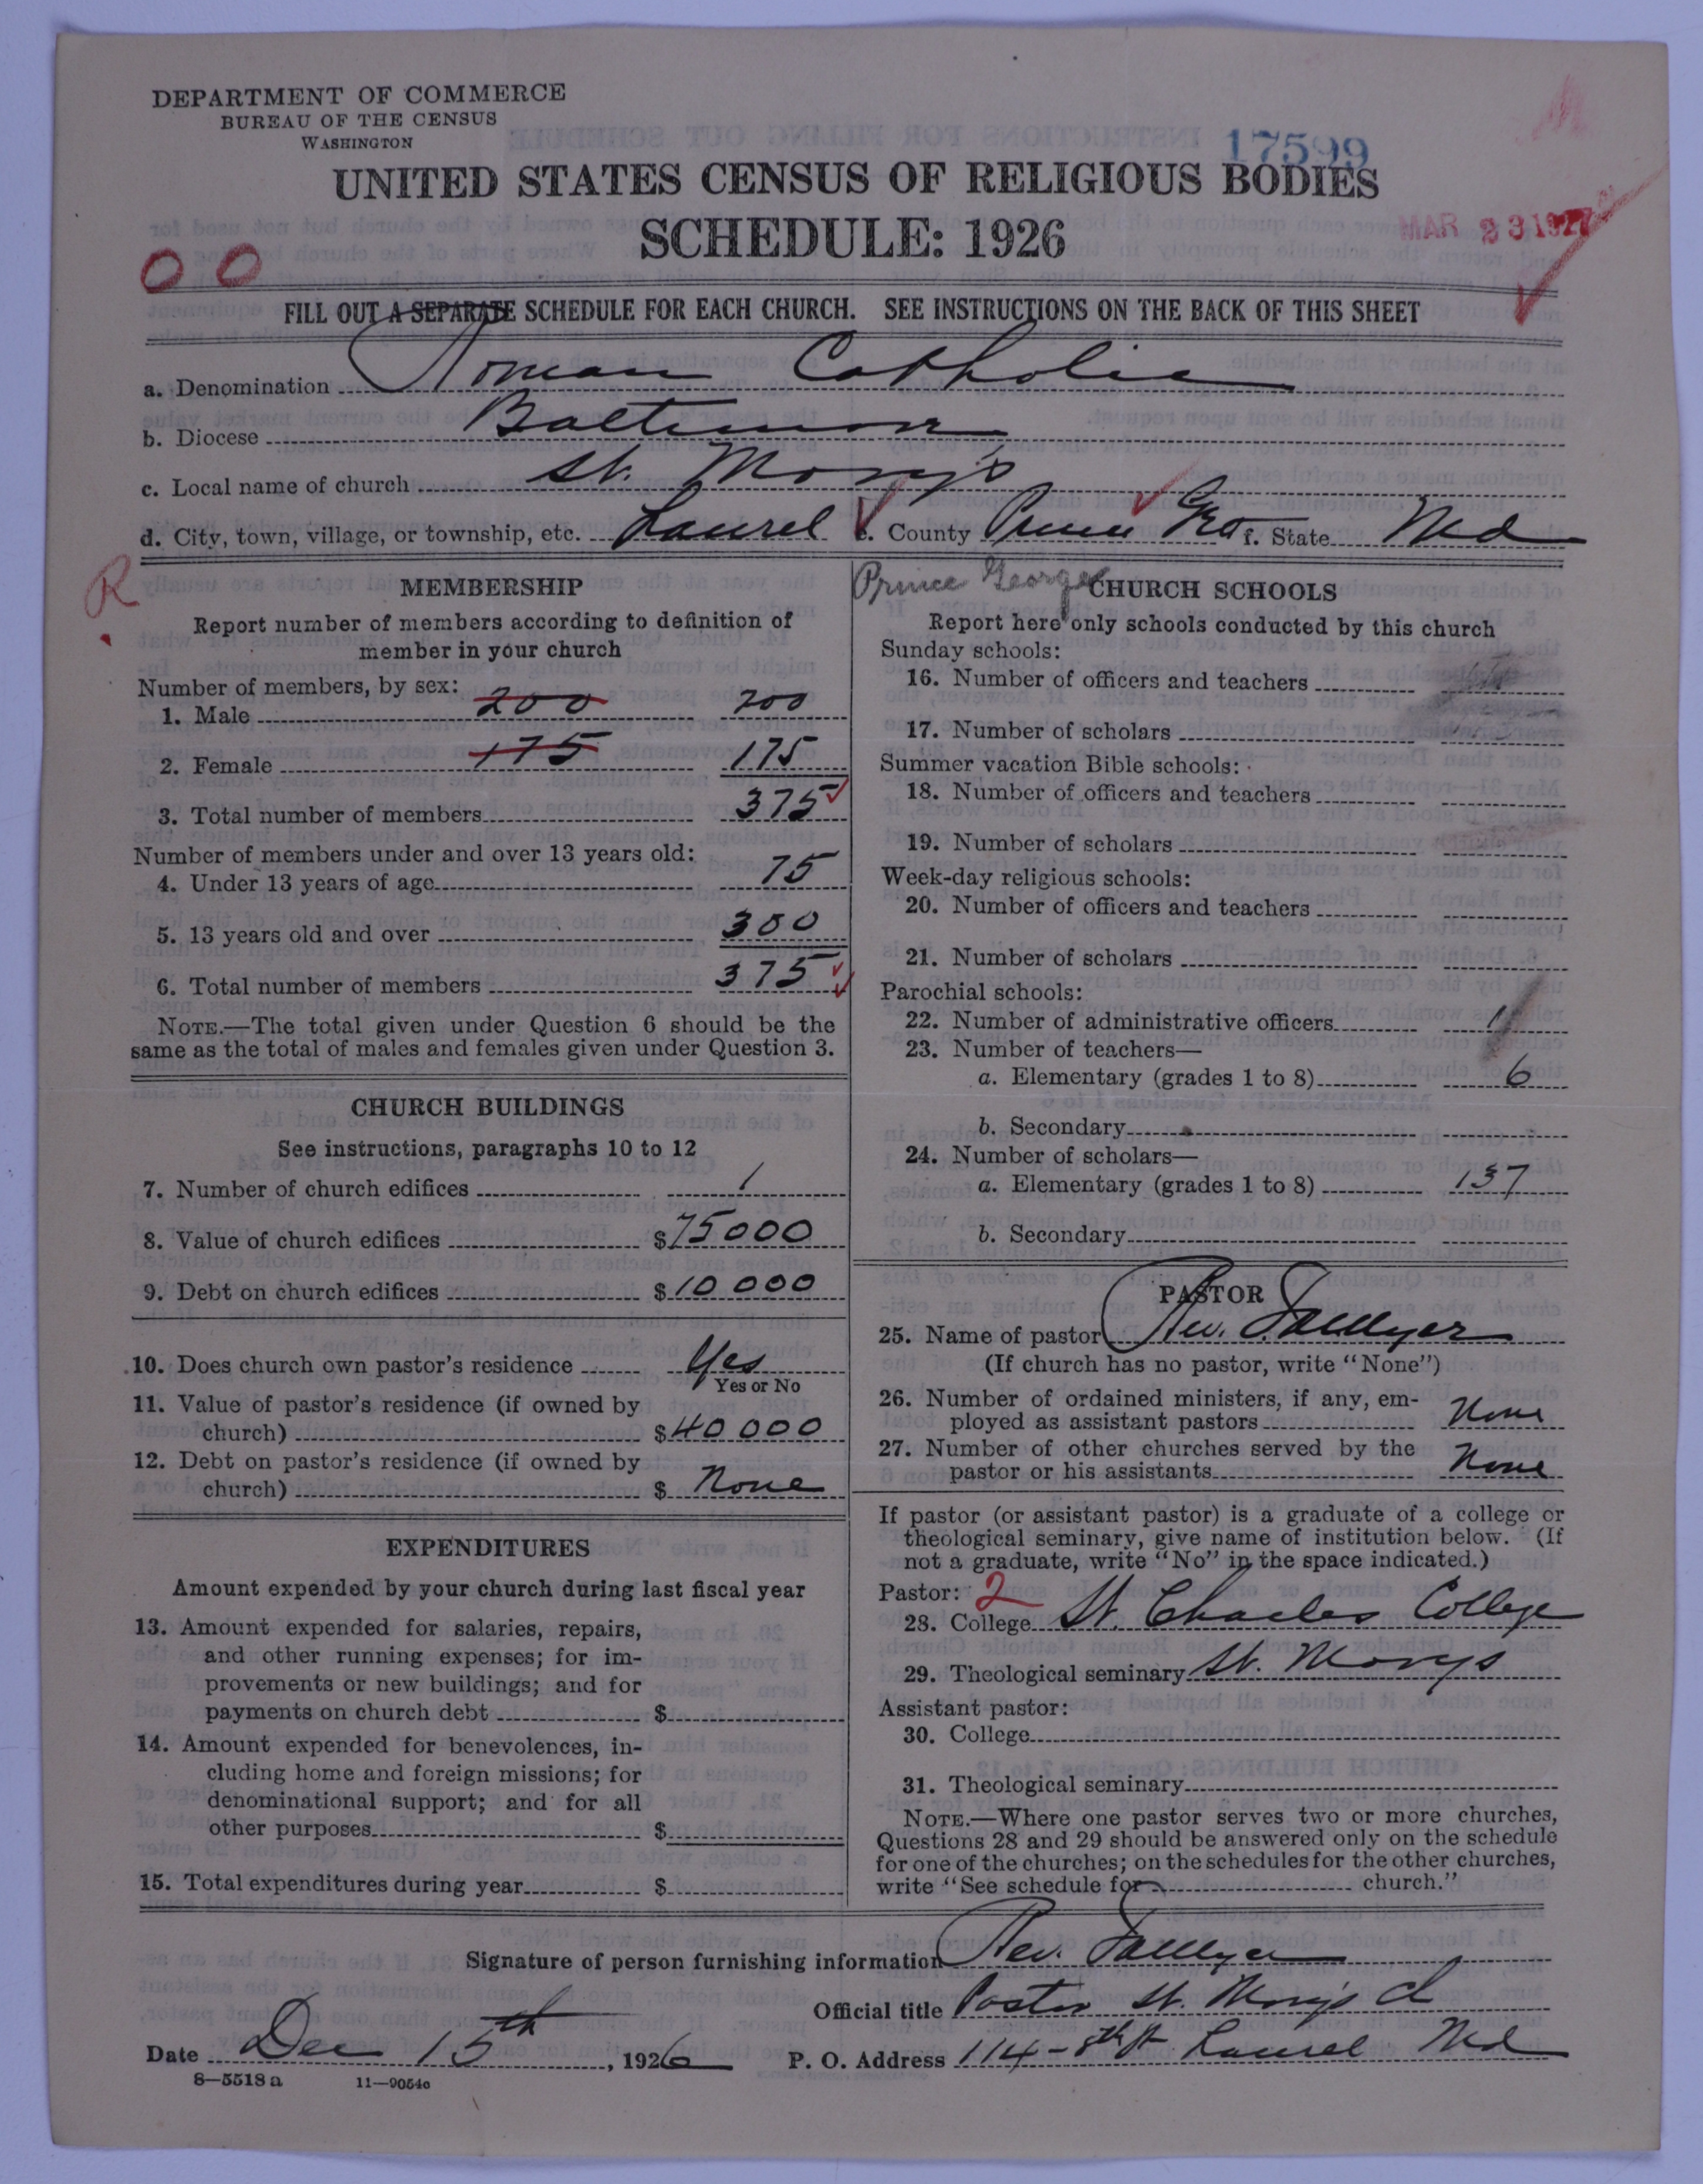 DEPARTMENT OF COMMERCE
BUREAU OF THE CENSUS
WASHINGTON
17599
UNITED STATES CENSUS OF RELIGIOUS BODIES
SCHEDULE: 1926
MAR 23 1927
00
FILL OUT A SEPARATE SCHEDULE FOR EACH CHURCH. SEE INSTRUCTIONS ON THE BACK OF THIS SHEET
a. Denomination Roman Catholic
b. Diocese Baltimore
c. Local name of church St. Mary's
d. City, town, village, or township, etc. Laurel e. County Prince Geo f. State Md
R
Prince George
MEMBERSHIP
Report number of members according to definition of
member in your church
Number of members, by sex:
1. Male 200 200
2. Female 175 175
3. Total number of members 375
Number of members under and over 13 years old:
4. Under 13 years of age 75
5. 13 years old and over 300
6. Total number of members 375
NOTE.—The total given under Question 6 should be the
same as the total of males and females given under Question 3.
CHURCH BUILDINGS
See instructions, paragraphs 10 to 12
7. Number of church edifices 1
8. Value of church edifices $75000
9. Debt on church edifices $10 000
10. Does church own pastor's residence Yes
Yes or No
11. Value of pastor's residence (if owned by
church) $40 000
12. Debt on pastor's residence (if owned by
church) $ None
EXPENDITURES
Amount expended by your church during last fiscal year
13. Amount expended for salaries, repairs,
and other running expenses; for im-
provements or new buildings; and for
payments on church debt $
14. Amount expended for benevolences, in-
cluding home and foreign missions; for
denominational support; and for all
other purposes $
15. Total expenditures during year $
CHURCH SCHOOLS
Report here only schools conducted by this church
Sunday schools:
16. Number of officers and teachers
17. Number of scholars
Summer vacation Bible schools:
18. Number of officers and teachers
19. Number of scholars
Week-day religious schools:
20. Number of officers and teachers
21. Number of scholars
Parochial schools:
22. Number of administrative officers 1
23. Number of teachers—
a. Elementary (grades 1 to 8) 6
b. Secondary
24. Number of scholars—
a. Elementary (grades 1 to 8) 137
b. Secondary
PASTOR
25. Name of pastor Rev.
(If church has no pastor, write "None")
26. Number of ordained ministers, if any, em-
ployed as assistant pastors None
27. Number of other churches served by the
pastor or his assistants None
If pastor (or assistant pastor) is a graduate of a college or
theological seminary, give name of institution below. (If
not a graduate, write "No" in the space indicated.)
Pastor: 2
28. College St. Charles College
29. Theological seminary St. Marys
Assistant pastor:
30. College
31. Theological seminary
NOTE.—Where one pastor serves two or more churches,
Questions 28 and 29 should be answered only on the schedule
for one of the churches; on the schedules for the other churches,
write "See schedule for church."
Signature of person furnishing information Rev.
Official title Pastor St. Mary's Ch
Date Dec 15th, 1926 P. O. Address 114-8th St Laurel Md
8—5518 a 11—9054c